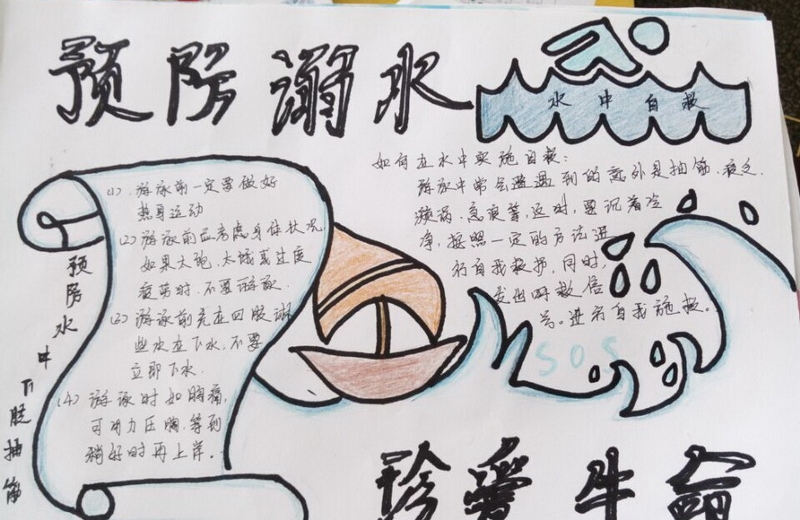 预防溺水
水中自救
预防水中下肢抽筋
(1).游泳前一定要做好
热身运动
(2)游泳前应考虑身体状况,
如果太饱、太饿或过度
疲劳时,不要游泳.
(3)游泳前先在四肢淋
些水在下水,不要
立即下水.
(4)游泳时如胸痛,
可用力压胸,等到
稍好时再上岸。
如何在水中实施自救:
游泳中常会遭遇到的意外是抽筋、疲乏、
漩涡、急浪等,这时,要沉着冷
净,按照一定的方法进
行自我救护.同时,
发出呼救信
号。进行自我施救。
SOS
珍爱生命